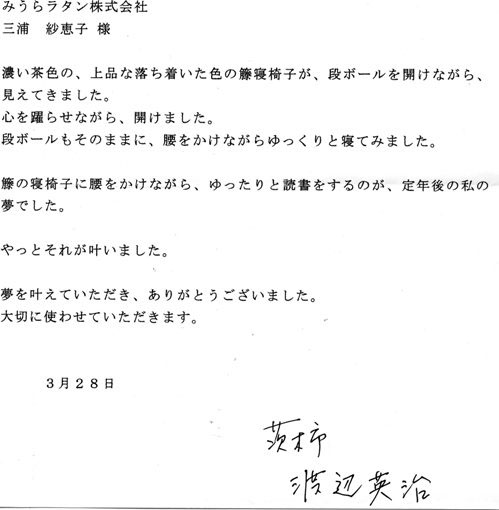 みうらラタン株式会社
三浦　紗恵子 様
濃い茶色の、上品な落ち着いた色の籐寝椅子が、段ボールを開けながら、
見えてきました。
心を躍らせながら、開けました。
段ボールもそのままに、腰をかけながらゆっくりと寝てみました。
籐の寝椅子に腰をかけながら、ゆったりと読書をするのが、定年後の私の
夢でした。
やっとそれが叶いました。
夢を叶えていただき、ありがとうございました。
大切に使わせていただきます。
３月２８日
茨木市
渡辺英治